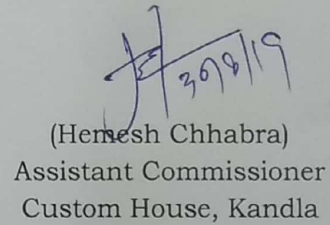 30/8/19
(Hemesh Chhabra)
Assistant Commissioner
Custom House, Kandla